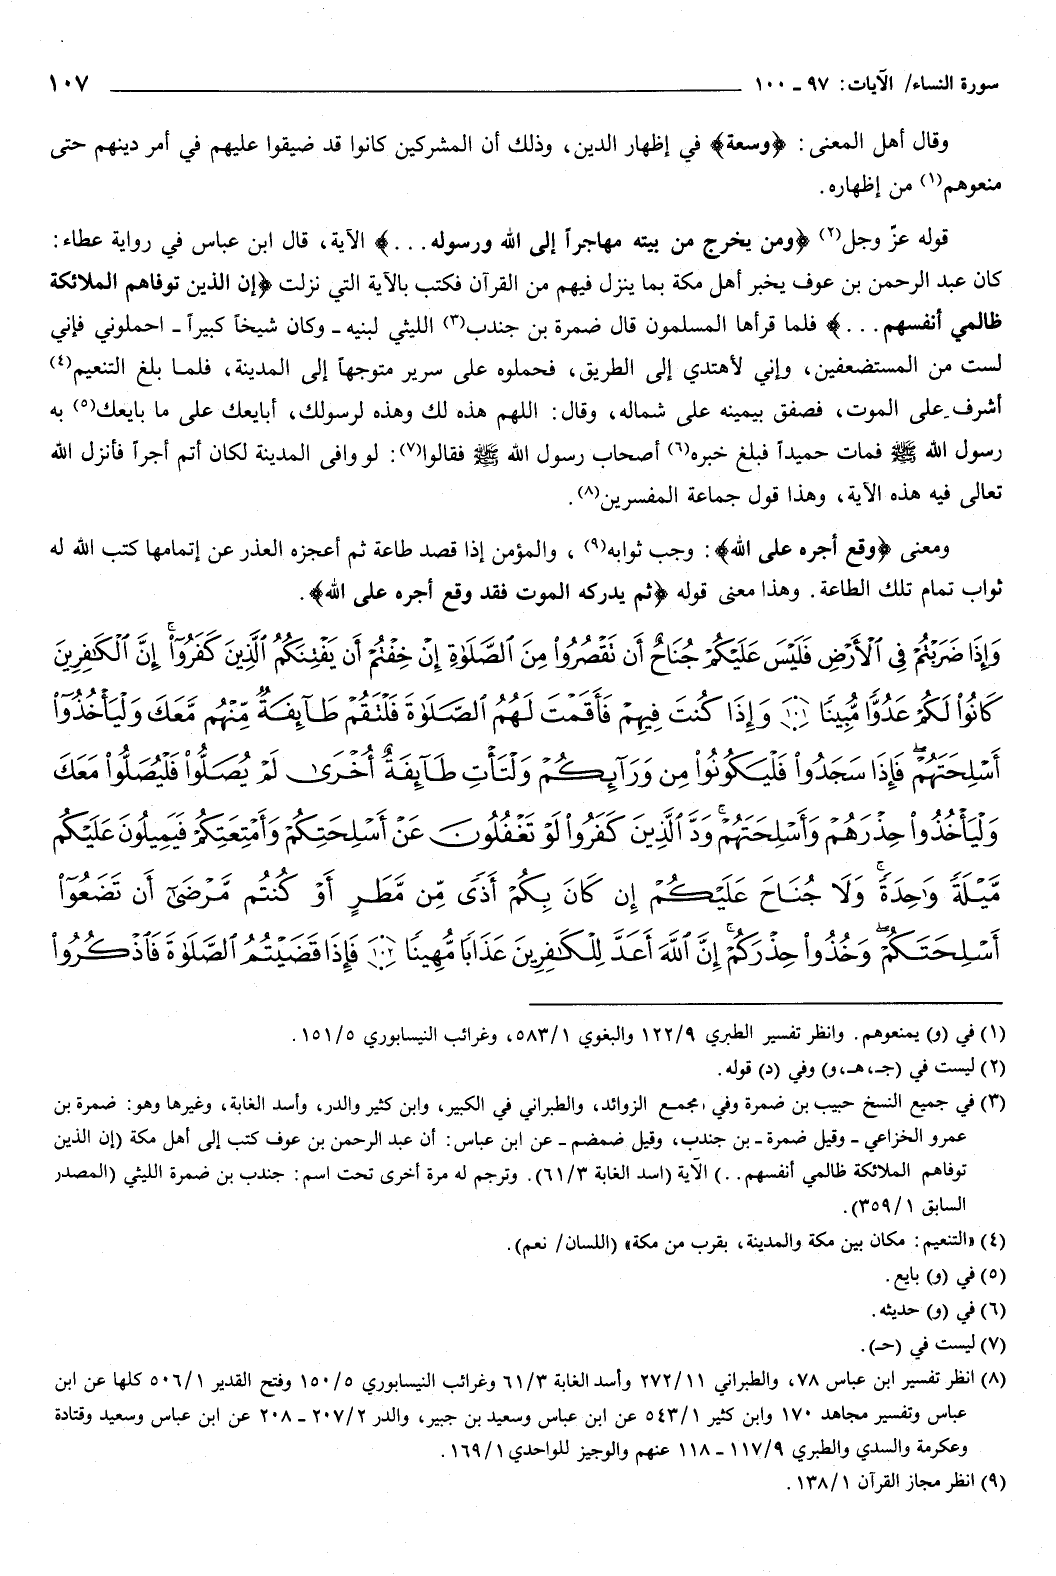 سورة النساء/ الآيات: ٩٧ ـ ١٠٠ ١٠٧
وقال أهل المعنى: ﴿وسعة﴾ في إظهار الدين، وذلك أن المشركين كانوا قد ضيقوا عليهم في أمر دينهم حتى
منعوهم(١) من إظهاره.
قوله عزّ وجل(٢) ﴿ومن يخرج من بيته مهاجراً إلى الله ورسوله...﴾ الآية، قال ابن عباس في رواية عطاء:
كان عبد الرحمن بن عوف يخبر أهل مكة بما ينزل فيهم من القرآن فكتب بالآية التي نزلت ﴿إن الذين توفاهم الملائكة
ظالمي أنفسهم...﴾ فلما قرأها المسلمون قال ضمرة بن جندب(٣) الليثي لبنيه ـ وكان شيخاً كبيراً ـ احملوني فإني
لست من المستضعفين، وإني لأهتدي إلى الطريق، فحملوه على سرير متوجهاً إلى المدينة، فلما بلغ التنعيم(٤)
أشرف على الموت، فصفق بيمينه على شماله، وقال: اللهم هذه لك وهذه لرسولك، أبايعك على ما بايعك(٥) به
رسول الله ﷺ فمات حميداً فبلغ خبره(٦) أصحاب رسول الله ﷺ فقالوا(٧): لو وافى المدينة لكان أتم أجراً فأنزل الله
تعالى فيه هذه الآية، وهذا قول جماعة المفسرين(٨).
ومعنى ﴿وقع أجره على الله﴾: وجب ثوابه(٩)، والمؤمن إذا قصد طاعة ثم أعجزه العذر عن إتمامها كتب الله له
ثواب تمام تلك الطاعة. وهذا معنى قوله ﴿ثم يدركه الموت فقد وقع أجره على الله﴾.
وَإِذَا ضَرَبْتُمْ فِي ٱلْأَرْضِ فَلَيْسَ عَلَيْكُمْ جُنَاحٌ أَن تَقْصُرُوا۟ مِنَ ٱلصَّلَوٰةِ إِنْ خِفْتُمْ أَن يَفْتِنَكُمُ ٱلَّذِينَ كَفَرُوٓا۟ ۚ إِنَّ ٱلْكَٰفِرِينَ
كَانُوا۟ لَكُمْ عَدُوًّا مُّبِينًا ١٠١ وَإِذَا كُنتَ فِيهِمْ فَأَقَمْتَ لَهُمُ ٱلصَّلَوٰةَ فَلْتَقُمْ طَآئِفَةٌ مِّنْهُم مَّعَكَ وَلْيَأْخُذُوٓا۟
أَسْلِحَتَهُمْ ۖ فَإِذَا سَجَدُوا۟ فَلْيَكُونُوا۟ مِن وَرَآئِكُمْ وَلْتَأْتِ طَآئِفَةٌ أُخْرَىٰ لَمْ يُصَلُّوا۟ فَلْيُصَلُّوا۟ مَعَكَ
وَلْيَأْخُذُوا۟ حِذْرَهُمْ وَأَسْلِحَتَهُمْ ۗ وَدَّ ٱلَّذِينَ كَفَرُوا۟ لَوْ تَغْفُلُونَ عَنْ أَسْلِحَتِكُمْ وَأَمْتِعَتِكُمْ فَيَمِيلُونَ عَلَيْكُم
مَّيْلَةً وَٰحِدَةً ۚ وَلَا جُنَاحَ عَلَيْكُمْ إِن كَانَ بِكُمْ أَذًى مِّن مَّطَرٍ أَوْ كُنتُم مَّرْضَىٰٓ أَن تَضَعُوٓا۟
أَسْلِحَتَكُمْ ۖ وَخُذُوا۟ حِذْرَكُمْ ۗ إِنَّ ٱللَّهَ أَعَدَّ لِلْكَٰفِرِينَ عَذَابًا مُّهِينًا ١٠٢ فَإِذَا قَضَيْتُمُ ٱلصَّلَوٰةَ فَٱذْكُرُوا۟
(١) في (و) يمنعوهم. وانظر تفسير الطبري ١٢٢/٩ والبغوي ٥٨٣/١، وغرائب النيسابوري ١٥١/٥.
(٢) ليست في (جـ،هـ،و) وفي (د) قوله.
(٣) في جميع النسخ حبيب بن ضمرة وفي مجمع الزوائد، والطبراني في الكبير، وابن كثير والدر، وأسد الغابة، وغيرها وهو: ضمرة بن
عمرو الخزاعي ـ وقيل ضمرة ـ بن جندب، وقيل ضمضم ـ عن ابن عباس: أن عبد الرحمن بن عوف كتب إلى أهل مكة (إن الذين
توفاهم الملائكة ظالمي أنفسهم..) الآية (اسد الغابة ٦١/٣). وترجم له مرة أخرى تحت اسم: جندب بن ضمرة الليثي (المصدر
السابق ٣٥٩/١).
(٤) «التنعيم: مكان بين مكة والمدينة، بقرب من مكة» (اللسان/ نعم).
(٥) في (و) بايع.
(٦) في (و) حديثه.
(٧) ليست في (حـ).
(٨) انظر تفسير ابن عباس ٧٨، والطبراني ٢٧٢/١١ وأسد الغابة ٦١/٣ وغرائب النيسابوري ١٥٠/٥ وفتح القدير ٥٠٦/١ كلها عن ابن
عباس وتفسير مجاهد ١٧٠ وابن كثير ٥٤٣/١ عن ابن عباس وسعيد بن جبير، والدر ٢٠٧/٢ ـ ٢٠٨ عن ابن عباس وسعيد وقتادة
وعكرمة والسدي والطبري ١١٧/٩ ـ ١١٨ عنهم والوجيز للواحدي ١٦٩/١.
(٩) انظر مجاز القرآن ١٣٨/١.